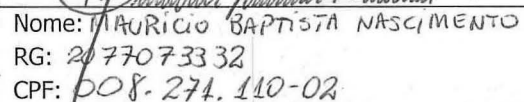 Nome: MAURÍCIO BAPTISTA NASCIMENTO
RG: 2077073332
CPF: 008.271.110-02